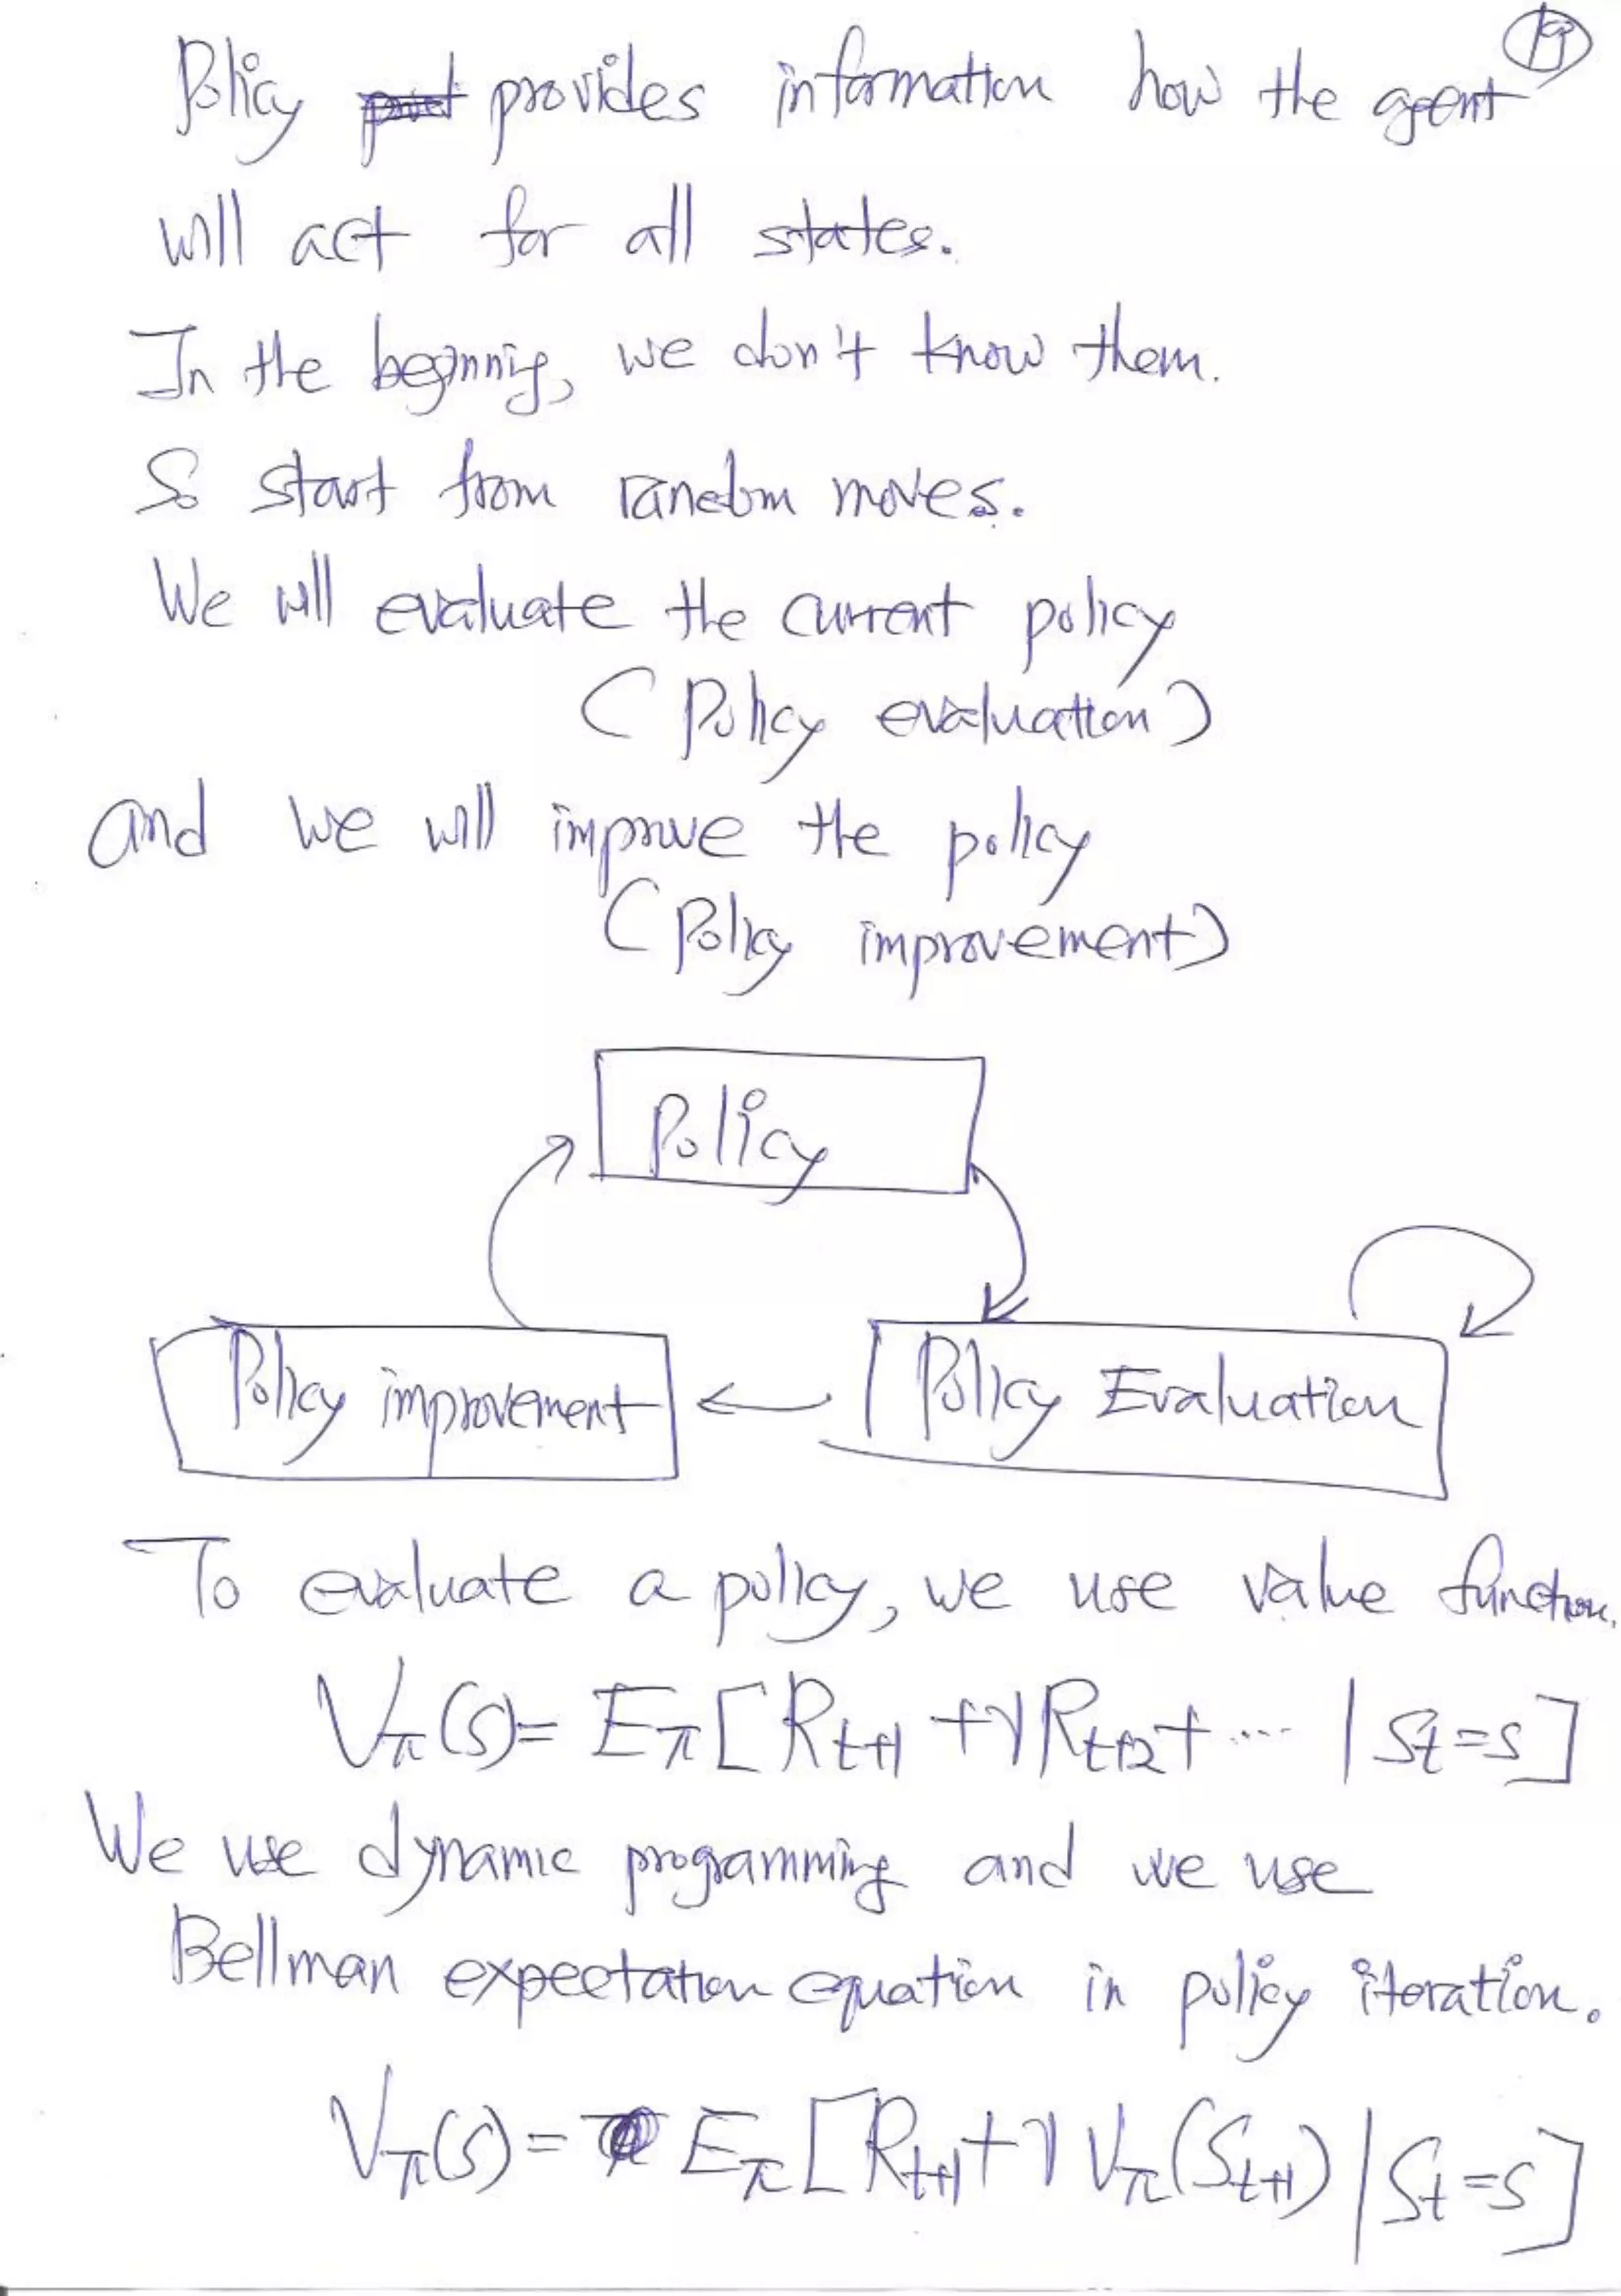 Policy provides information how the agent
will act for all states.
In the beginnig, we don't know them.
So start from random moves.
We will evaluate the current policy
(Policy evaluation)
and we will improve the policy
(Policy improvement)
Policy
Policy improvement
Policy Evaluation
To evaluate a policy, we use value function.
Vπ(s) = Eπ[Rt+1 + γRt+2 + ... | St=s]
We use dynamic programming and we use
Bellman expectation equation in policy iteration.
Vπ(s) = Eπ[Rt+1 + γVπ(St+1) | St=s]